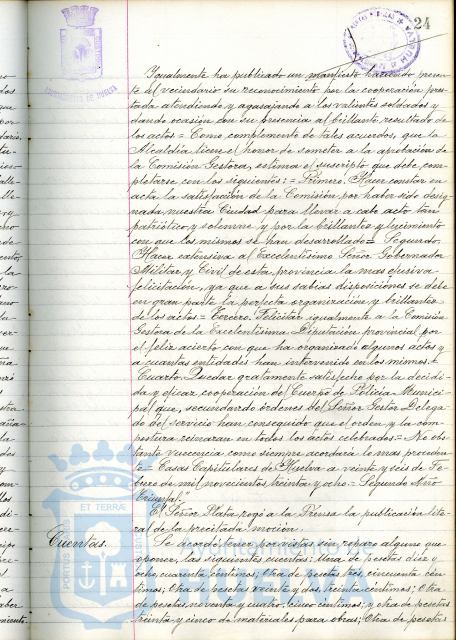 24
AYUNTAMIENTO DE HUELVA
Igualmente ha publicado un manifiesto haciendo presen-
te al vecindario su reconocimiento por la cooperación pres-
tada atendiendo y agasajando a los valientes soldados y
dando ocasión con su presencia al brillante resultado de
los actos = Como complemento de tales acuerdos, que la
Alcaldía tiene el honor de someter a la aprobación de
la Comisión Gestora, estima el suscripto que debe com-
pletarse con los siguientes: = Primero. Hacer constar en
acta la satisfacción de la Comisión por haber sido desig-
nada nuestra Ciudad para llevar a cabo acto tan
patriótico y solemne y por la brillantez y lucimiento
con que los mismos se han desarrollado = Segundo.
Hacer extensiva al Excelentísimo Señor Gobernador
Militar y Civil de esta provincia la mas efusiva
felicitación, ya que a sus sabias disposiciones se debe
en gran parte la perfecta organización y brillantez
de los actos = Tercero. Felicitar igualmente a la Comisión
Gestora de la Excelentísima Diputación provincial por
el feliz acierto con que ha organizado algunos actos y
a cuantas entidades han intervenido en los mismos. =
Cuarto. Quedar gratamente satisfecho por la decidi-
da y eficaz cooperación del Cuerpo de Policía Munici-
pal que, secundando órdenes del Señor Gestor Delega-
do del servicio han conseguido que el orden y la com-
postura reinaran en todos los actos celebrados = No obs-
tante Vuecencia como siempre acordará lo mas proceden-
te = Casas Capitulares de Huelva a veinte y seis de Fe-
brero de mil novecientos treinta y ocho = Segundo Año
Triunfal."
El Señor Plata rogó a la Prensa la publicación lite-
ral de la precitada moción.
Cuentas.
Se acordó tener por vistas sin reparo alguno que
oponer, las siguientes cuentas: Una de pesetas diez y
ocho, cuarenta céntimos; Otra de pesetas tres, cincuenta cén-
timos; Otra de pesetas veinte y dos, treinta céntimos; Otra
de pesetas noventa y cuatro, cinco céntimos; y otra de pesetas
treinta y cinco de materiales para obras; Otra de pesetas
ET TERRAE
Ayuntamiento de